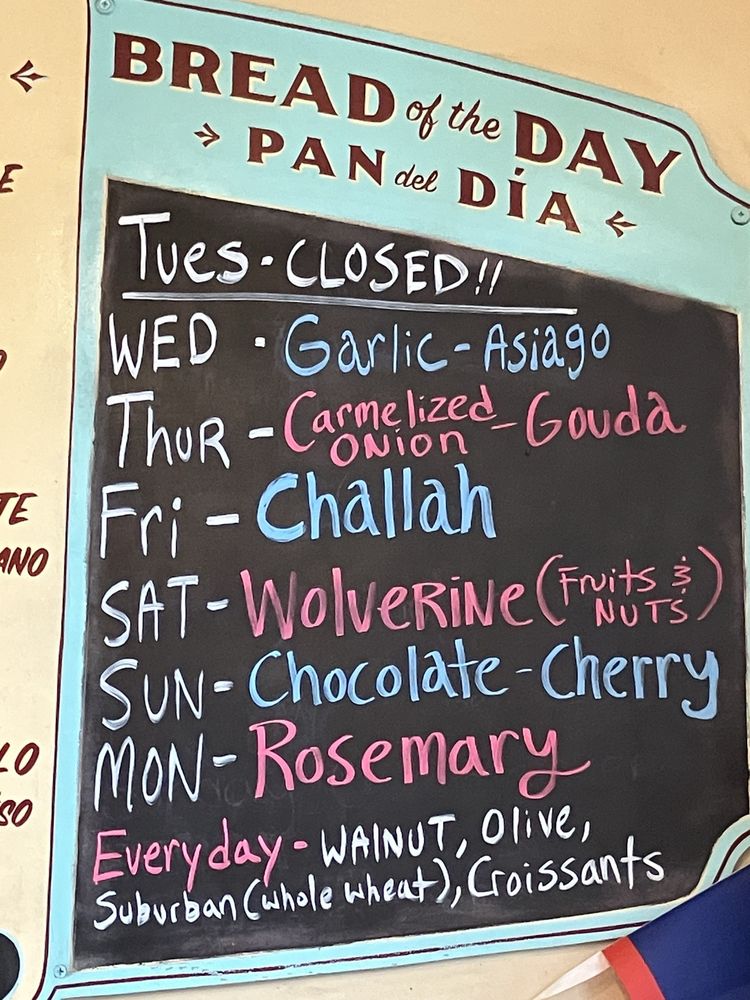 BREAD of the DAY
PAN del DÍA
Tues - CLOSED!!
WED - Garlic - Asiago
THUR - Carmelized ONION - Gouda
Fri - Challah
SAT - WOLVERINE (Fruits & NUTS)
SUN - Chocolate - Cherry
MON - Rosemary
Everyday - WALNUT, Olive,
Suburban (whole wheat), Croissants
E
TE
ANO
LO
SO